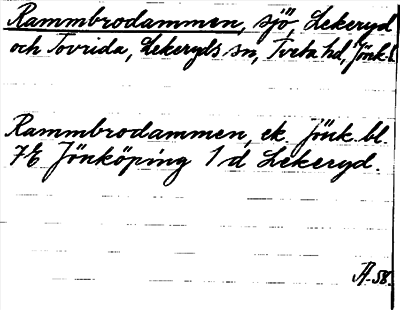 Rammbrodammen, sjö, Lekeryd
och Tovrida, Lekeryds sn, Tveta hd, Jönk. l.
Rammbrodammen, ek. Jönk. bl.
7E Jönköping 1 d Lekeryd.
Å-58.